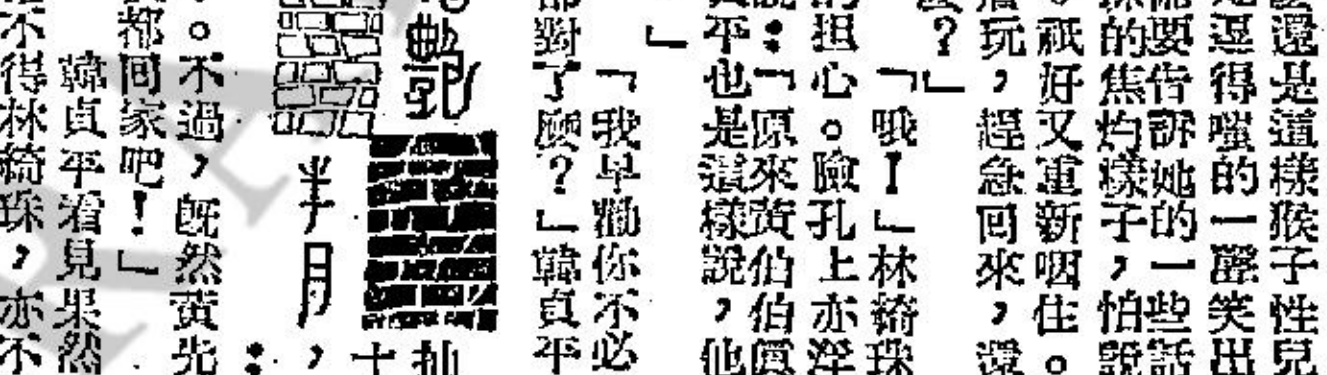 還是這樣猴子性兒
逗得嗤的一聲笑出
要告訴她的一些話
的焦灼樣子，怕說
祇好又重新咽住。
玩，趕急回來，還
？」
「哦！」林綺珠
的担心。臉孔上亦浮
：「原來黃伯伯真
平也是這樣說，他
」
「我早勸你不必
都對了麼？」韓貞平
郵
半月，
：
。不過，既然黃先
都回家吧！」
韓貞平看見果然
不得林綺珠，亦不